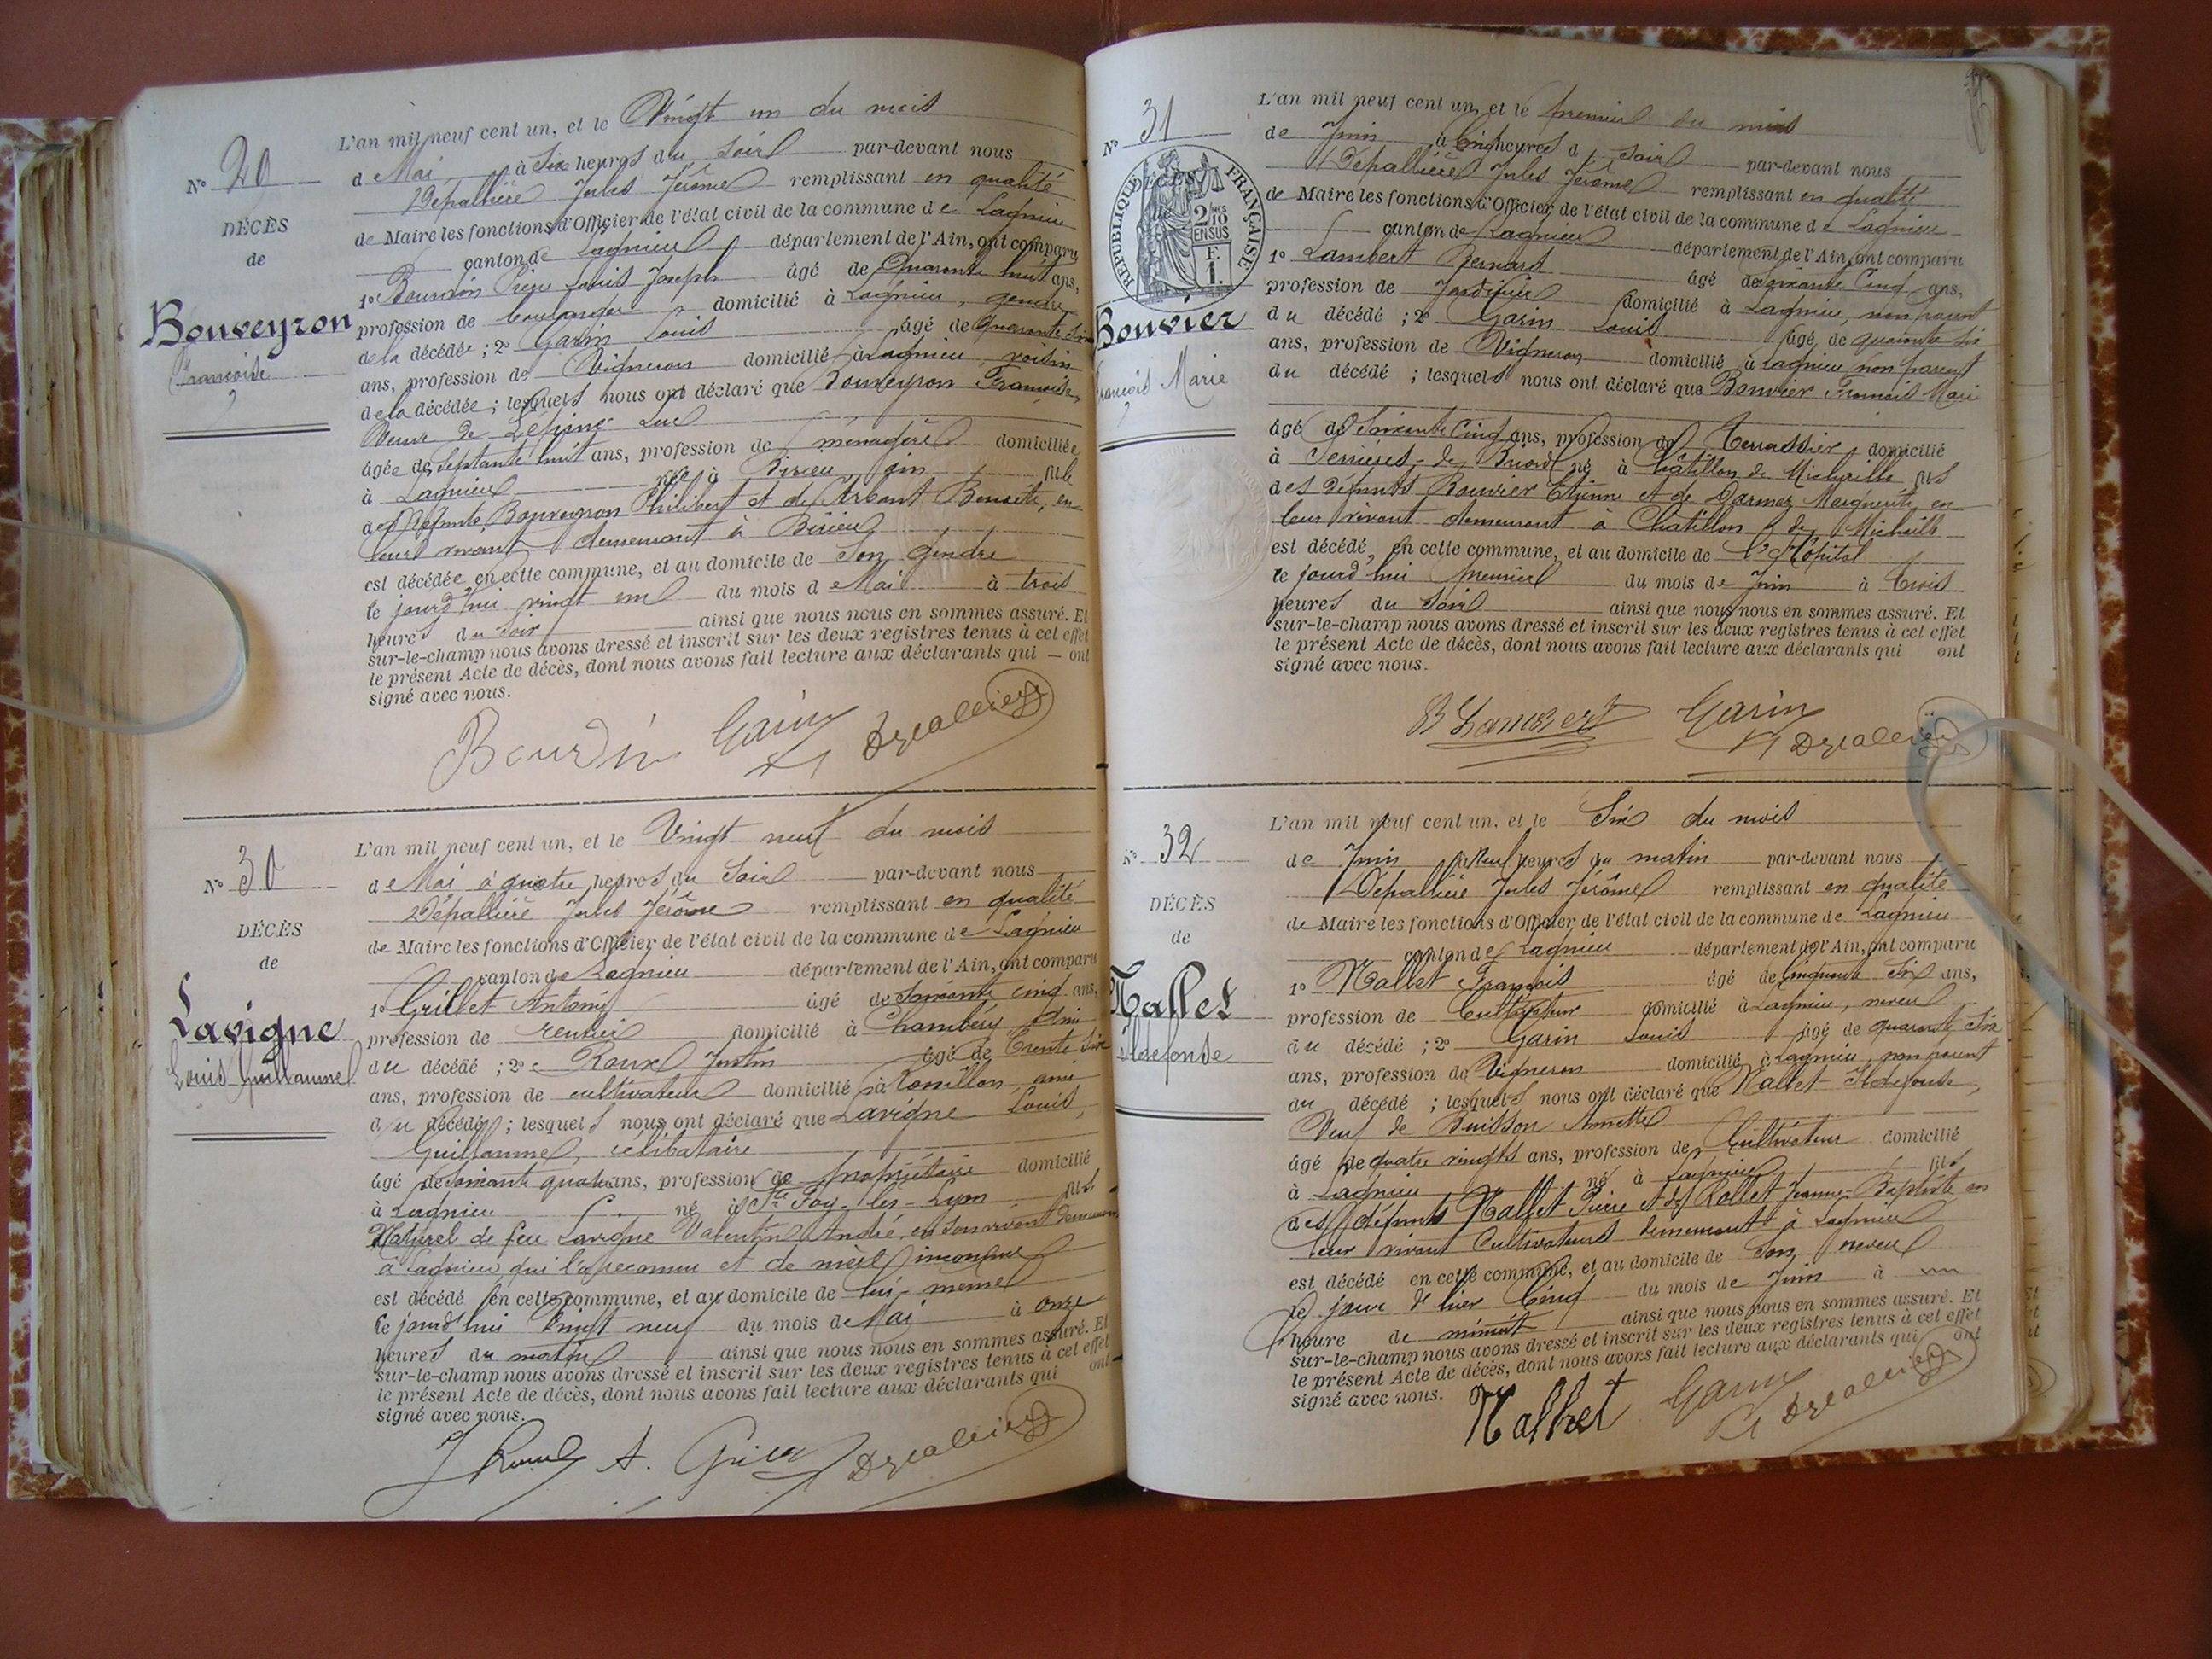 N° 29
DÉCÈS
de
Bouveyron
Françoise
L'an mil neuf cent un, et le Vingt un du mois
de Mai à Six heures du Soir par-devant nous
Dépallière Jules Jérôme remplissant en qualité
de Maire les fonctions d'Officier de l'état civil de la commune de Lagnieu
canton de Lagnieu département de l'Ain, ont comparu
1° Bourdin Louis Joseph âgé de Quarante huit ans,
profession de boulanger domicilié à Lagnieu, gendre
de la décédée ; 2° Garin Louis âgé de quarante six
ans, profession de Vigneron domicilié à Lagnieu, voisin
de la décédée ; lesquels nous ont déclaré que Bouveyron Françoise,
Veuve de Lépine Luc
âgée de Septante huit ans, profession de ménagère domiciliée
à Lagnieu née à Birieu, Ain fille
des défunts Bouveyron Philibert et de Benoîte, en
leur vivant demeurant à Birieu
est décédée en cette commune, et au domicile de Son gendre
le jourd'hui vingt un du mois de Mai à trois
heures du Soir ainsi que nous nous en sommes assuré. Et
sur-le-champ nous avons dressé et inscrit sur les deux registres tenus à cet effet
le présent Acte de décès, dont nous avons fait lecture aux déclarants qui — ont
signé avec nous.
Bourdin Garin
N° 30
DÉCÈS
de
Lavigne
Louis Guillaume
L'an mil neuf cent un, et le Vingt neuf du mois
de Mai à quatre heures du Soir par-devant nous
Dépallière Jules Jérôme remplissant en qualité
de Maire les fonctions d'Officier de l'état civil de la commune de Lagnieu
canton de Lagnieu département de l'Ain, ont comparu
1° Grillet Antony âgé de Soixante cinq ans,
profession de rentier domicilié à Chambéry, Ami
du décédé ; 2° Roux Justin âgé de Trente Six
ans, profession de cultivateur domicilié à ami
du décédé ; lesquels nous ont déclaré que Lavigne Louis,
Guillaume, célibataire
âgé de Soixante quatre ans, profession de propriétaire domicilié
à Lagnieu né à Ste Foy-les-Lyon fils
Naturel de feu Lavigne Valentin André, en son vivant demeurant
à Lagnieu qui l'a reconnu et de mère inconnue
est décédé en cette commune, et au domicile de lui même
le jourd'hui Vingt neuf du mois de Mai à onze
heures du matin ainsi que nous nous en sommes assuré. Et
sur-le-champ nous avons dressé et inscrit sur les deux registres tenus à cet effet
le présent Acte de décès, dont nous avons fait lecture aux déclarants qui ont
signé avec nous.
N° 31
RÉPUBLIQUE FRANÇAISE
2/10 MES EN SUS
F. 1.
DÉCÈS
de
Bouvier
François Marie
L'an mil neuf cent un, et le premier du mois
de Juin à Cinq heures du Soir par-devant nous
Dépallière Jules Jérôme remplissant en qualité
de Maire les fonctions d'Officier de l'état civil de la commune de Lagnieu
canton de Lagnieu département de l'Ain, ont comparu
1° Lambert Bernard âgé de Soixante Cinq ans,
profession de Jardinier domicilié à Lagnieu, non parent
du décédé ; 2° Garin Louis âgé de quarante six
ans, profession de Vigneron domicilié à Lagnieu non parent
du décédé ; lesquels nous ont déclaré que Bouvier François Marie
âgé de Soixante Cinq ans, profession de Terrassier domicilié
à Serrières-de-Briord né à Châtillon de Michaille fils
des défunts Bouvier Etienne et de Darmez Marguerite, en
leur vivant demeurant à Chatillon de Michaille
est décédé, en cette commune, et au domicile de l'Hôpital
le jourd'hui premier du mois de Juin à Trois
heures du Soir ainsi que nous nous en sommes assuré. Et
sur-le-champ nous avons dressé et inscrit sur les deux registres tenus à cet effet
le présent Acte de décès, dont nous avons fait lecture aux déclarants qui ont
signé avec nous.
B Lambert Garin
N° 32
DÉCÈS
de
Mallet
Ildefonse
L'an mil neuf cent un, et le Six du mois
de Juin à Neuf heures du matin par-devant nous
Dépallière Jules Jérôme remplissant en qualité
de Maire les fonctions d'Officier de l'état civil de la commune de Lagnieu
canton de Lagnieu département de l'Ain, ont comparu
1° Mallet François âgé de Cinquante Six ans,
profession de Cultivateur domicilié à Lagnieu, neveu
du décédé ; 2° Garin Louis âgé de quarante six
ans, profession de Vigneron domicilié à Lagnieu, non parent
du décédé ; lesquels nous ont déclaré que Mallet Ildefonse,
Veuf de Buisson Annette
âgé de quatre vingts ans, profession de Cultivateur domicilié
à Lagnieu né à Lagnieu fils
des défunts Mallet Pierre et de Rollet Jeanne-Baptiste en
leur vivant Cultivateurs demeurant à Lagnieu
est décédé en cette commune, et au domicile de Son neveu
le jour d'hier Cinq du mois de Juin à
heure de minuit ainsi que nous nous en sommes assuré. Et
sur-le-champ nous avons dressé et inscrit sur les deux registres tenus à cet effet
le présent Acte de décès, dont nous avons fait lecture aux déclarants qui ont
signé avec nous.
Mallet Garin